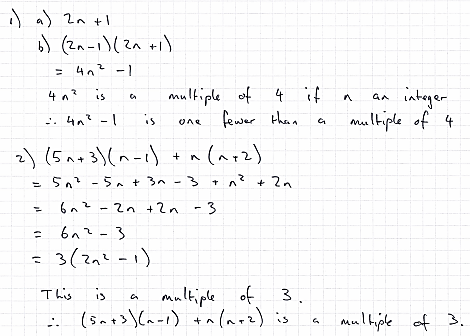 1) a) 2n + 1
b) (2n-1)(2n+1)
= 4n² - 1
4n² is a multiple of 4 if n an integer
∴ 4n² - 1 is one fewer than a multiple of 4
2) (5n+3)(n-1) + n(n+2)
= 5n² - 5n + 3n - 3 + n² + 2n
= 6n² - 2n + 2n - 3
= 6n² - 3
= 3(2n² - 1)
This is a multiple of 3.
∴ (5n+3)(n-1) + n(n+2) is a multiple of 3.